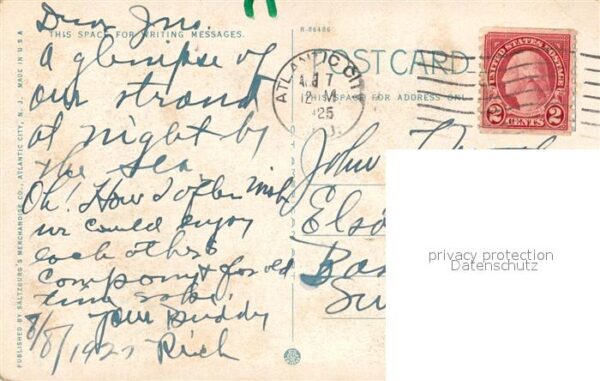 Dear Jno.
THIS SPACE FOR WRITING MESSAGES.
A glimpse of
our strand
at night by
the sea.
Oh! How I often wish
we could enjoy
each others
company for old
time sake.
Your Buddy
8/8/1925 Rich
PUBLISHED BY SALTZBURG'S MERCHANDISE CO., ATLANTIC CITY, N. J. MADE IN U S A
R-86486
POST CARD
THIS SPACE FOR ADDRESS ONLY
ATLANTIC CITY
7
12 M
'25
UNITED STATES POSTAGE
2 CENTS 2
John
privacy protection
Datenschutz